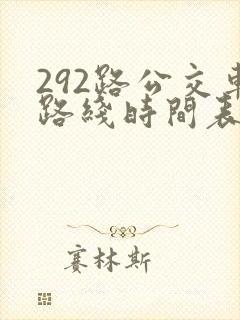 292路公交車
路綫時間表
賽林斯